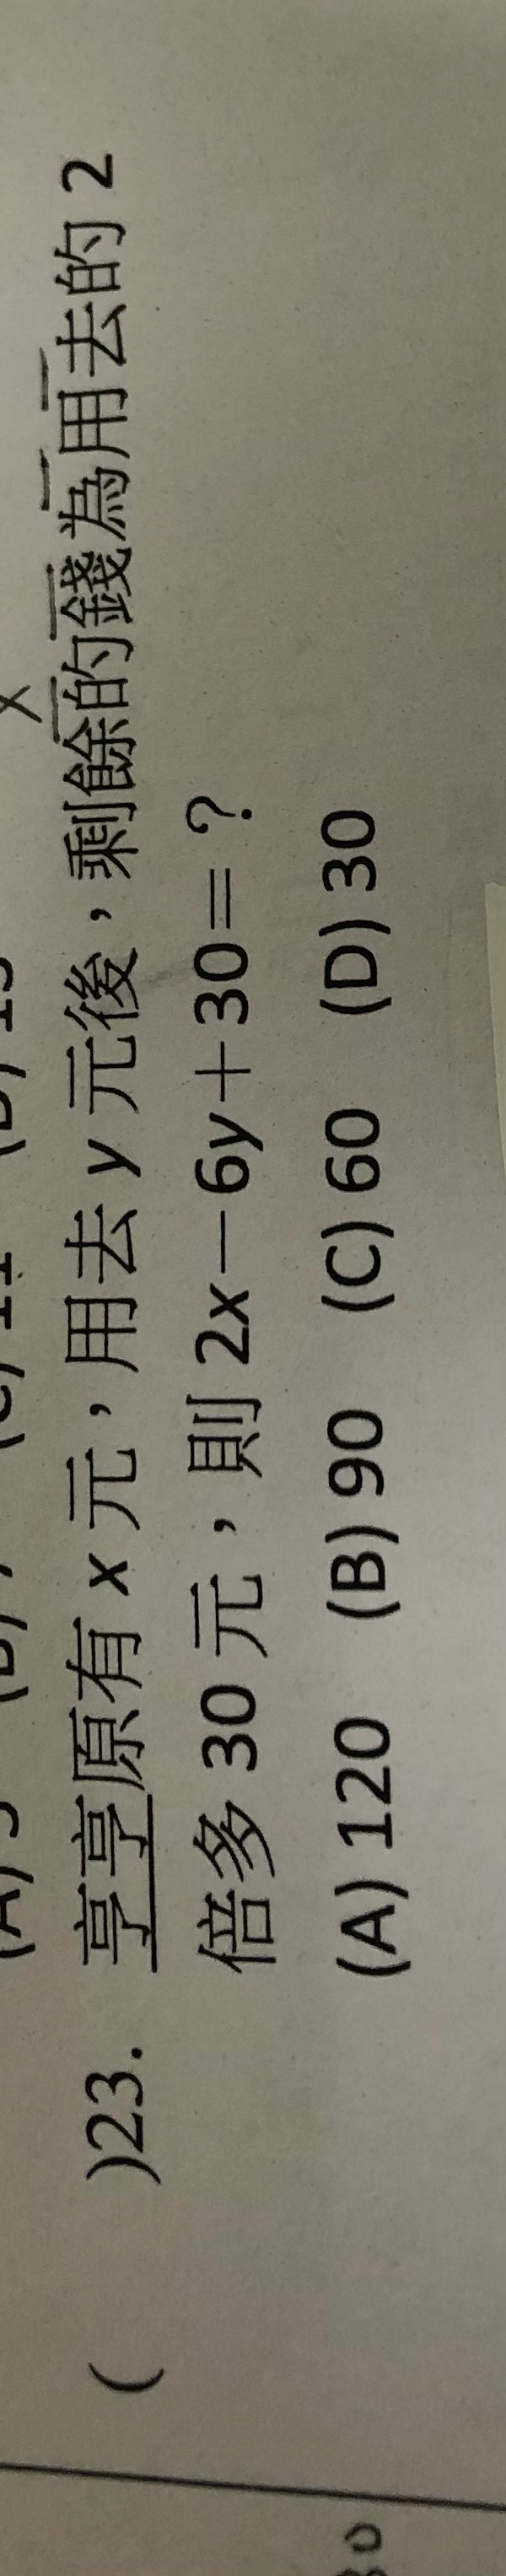 ( )23. 亨亨原有 x 元，用去 y 元後，剩餘的錢為用去的 2
倍多 30 元，則 2x－6y＋30＝？
(A) 120 (B) 90 (C) 60 (D) 30